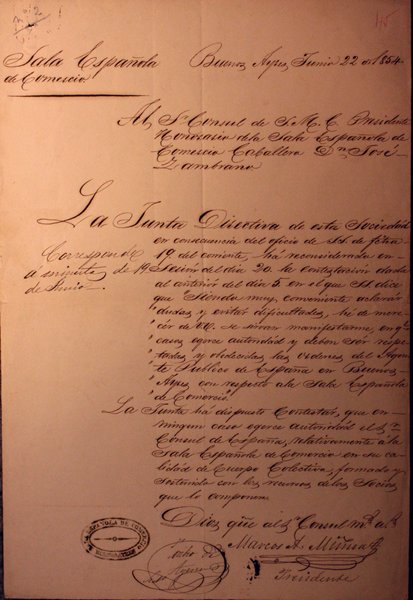 Sala Española
de Comercio
Buenos Ayres Junio 22 de 1854.
Al Sr. Consul de S. M. C. Presidente
Honorario de la Sala Española de
Comercio Caballero Dn. José
Zambrano
La Junta Directiva de esta Sociedad
en consecuencia del oficio de Sd. de fecha
19 del corriente, ha reconsiderado en
Sesion del dia 20. la contestacion dada
al anterior del dia 5 en el que Sd. dice
que "Siendo muy conveniente aclarar
"dudas y evitar dificultades, he de mere-
"cer de VV. se sirvan manifestarme, en q.e
"casos egerce autoridad y deben ser respe-
"tadas y obedecidas las ordenes del Agen-
"te Publico de España en Buenos
"Ayres con respecto a la Sala Española
"de Comercio"
Corresponde
a minuta de 19
de Junio.
La Junta ha dispuesto Contestar, que en
ningun caso egerce autoridad el Sr.
Consul de España, relativamente a la
Sala Española de Comercio en su ca-
lidad de Cuerpo Colectivo, formado y
Sostenido con los recursos de los Socios
que lo componen.
Dios gũe al Sr. Consul ms. as.
Marcos A. Muñoa
Presidente
SALA ESPAÑOLA DE COMERCIO